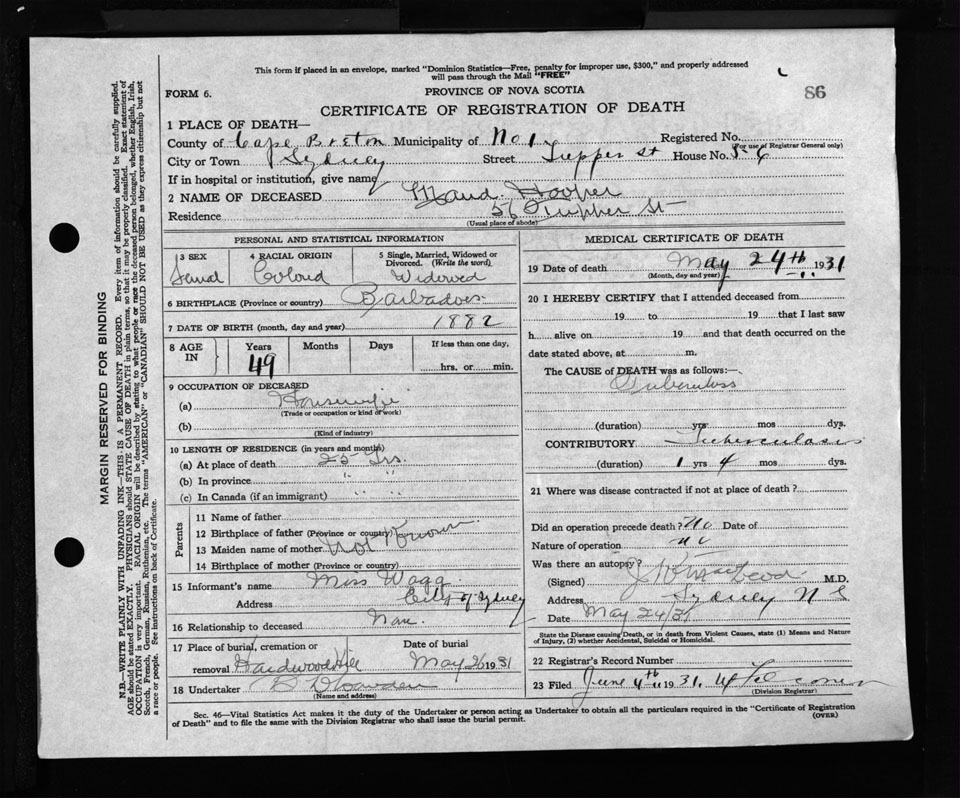 This form if placed in an envelope, marked "Dominion Statistics—Free, penalty for improper use, $300," and properly addressed
will pass through the Mail "FREE"
86
FORM 6.
PROVINCE OF NOVA SCOTIA
CERTIFICATE OF REGISTRATION OF DEATH
1 PLACE OF DEATH—
County of Cape Breton Municipality of No. 1 Registered No.
(For use of Registrar General only)
City or Town Sydney Street Tupper St House No. 56
If in hospital or institution, give name
2 NAME OF DECEASED Maud Hooper
Residence 56 Tupper St
(Usual place of abode)
PERSONAL AND STATISTICAL INFORMATION
3 SEX 4 RACIAL ORIGIN 5 Single, Married, Widowed or Divorced. (Write the word)
Femal Colord Widowed
6 BIRTHPLACE (Province or country) Barbadoes
7 DATE OF BIRTH (month, day and year) 1882
8 AGE IN Years Months Days If less than one day,
49 hrs. or min.
9 OCCUPATION OF DECEASED
(a) Housewife
(Trade or occupation or kind of work)
(b)
(Kind of industry)
10 LENGTH OF RESIDENCE (in years and months)
(a) At place of death 25 Yrs.
(b) In province " "
(c) In Canada (if an immigrant) " "
Parents
11 Name of father
12 Birthplace of father (Province or country)
13 Maiden name of mother Not Known
14 Birthplace of mother (Province or country)
15 Informant's name Miss Wagg
Address City of Sydney
16 Relationship to deceased
17 Place of burial, cremation or removal Hardwood Hill
Date of burial May 26 1931
18 Undertaker
(Name and address)
MEDICAL CERTIFICATE OF DEATH
19 Date of death May 24th 1931
(Month, day and year)
20 I HEREBY CERTIFY that I attended deceased from
19 to 19 that I last saw
h alive on 19 and that death occurred on the
date stated above, at m.
The CAUSE of DEATH was as follows:—
Tuberculoss
(duration) yrs mos dys.
CONTRIBUTORY Tuberculosis
(duration) 1 yrs 4 mos dys.
21 Where was disease contracted if not at place of death?
Did an operation precede death? No Date of
Nature of operation no
Was there an autopsy?
(Signed) M.D.
Address Sydney N S
Date May 24/31
State the Disease causing Death, or in death from Violent Causes, state (1) Means and Nature
of Injury, (2) whether Accidental, Suicidal or Homicidal.
22 Registrar's Record Number
23 Filed June 4th 1931.
(Division Registrar)
Sec. 46—Vital Statistics Act makes it the duty of the Undertaker or person acting as Undertaker to obtain all the particulars required in the "Certificate of Registration
of Death" and to file the same with the Division Registrar who shall issue the burial permit.
(OVER)
MARGIN RESERVED FOR BINDING
N.B.—WRITE PLAINLY WITH UNFADING INK—THIS IS A PERMANENT RECORD. Every item of information should be carefully supplied.
AGE should be stated EXACTLY. PHYSICIANS should STATE CAUSE OF DEATH in plain terms, so that it may be properly classified. Exact statement of
OCCUPATION is very important. RACIAL ORIGIN will be described by stating to what people or race the deceased person belonged, whether English, Irish,
Scotch, French, German, Russian, Ruthenian, etc. The terms "AMERICAN" or "CANADIAN" SHOULD NOT BE USED as they express citizenship but not
a race or people. See instructions on back of Certificate.